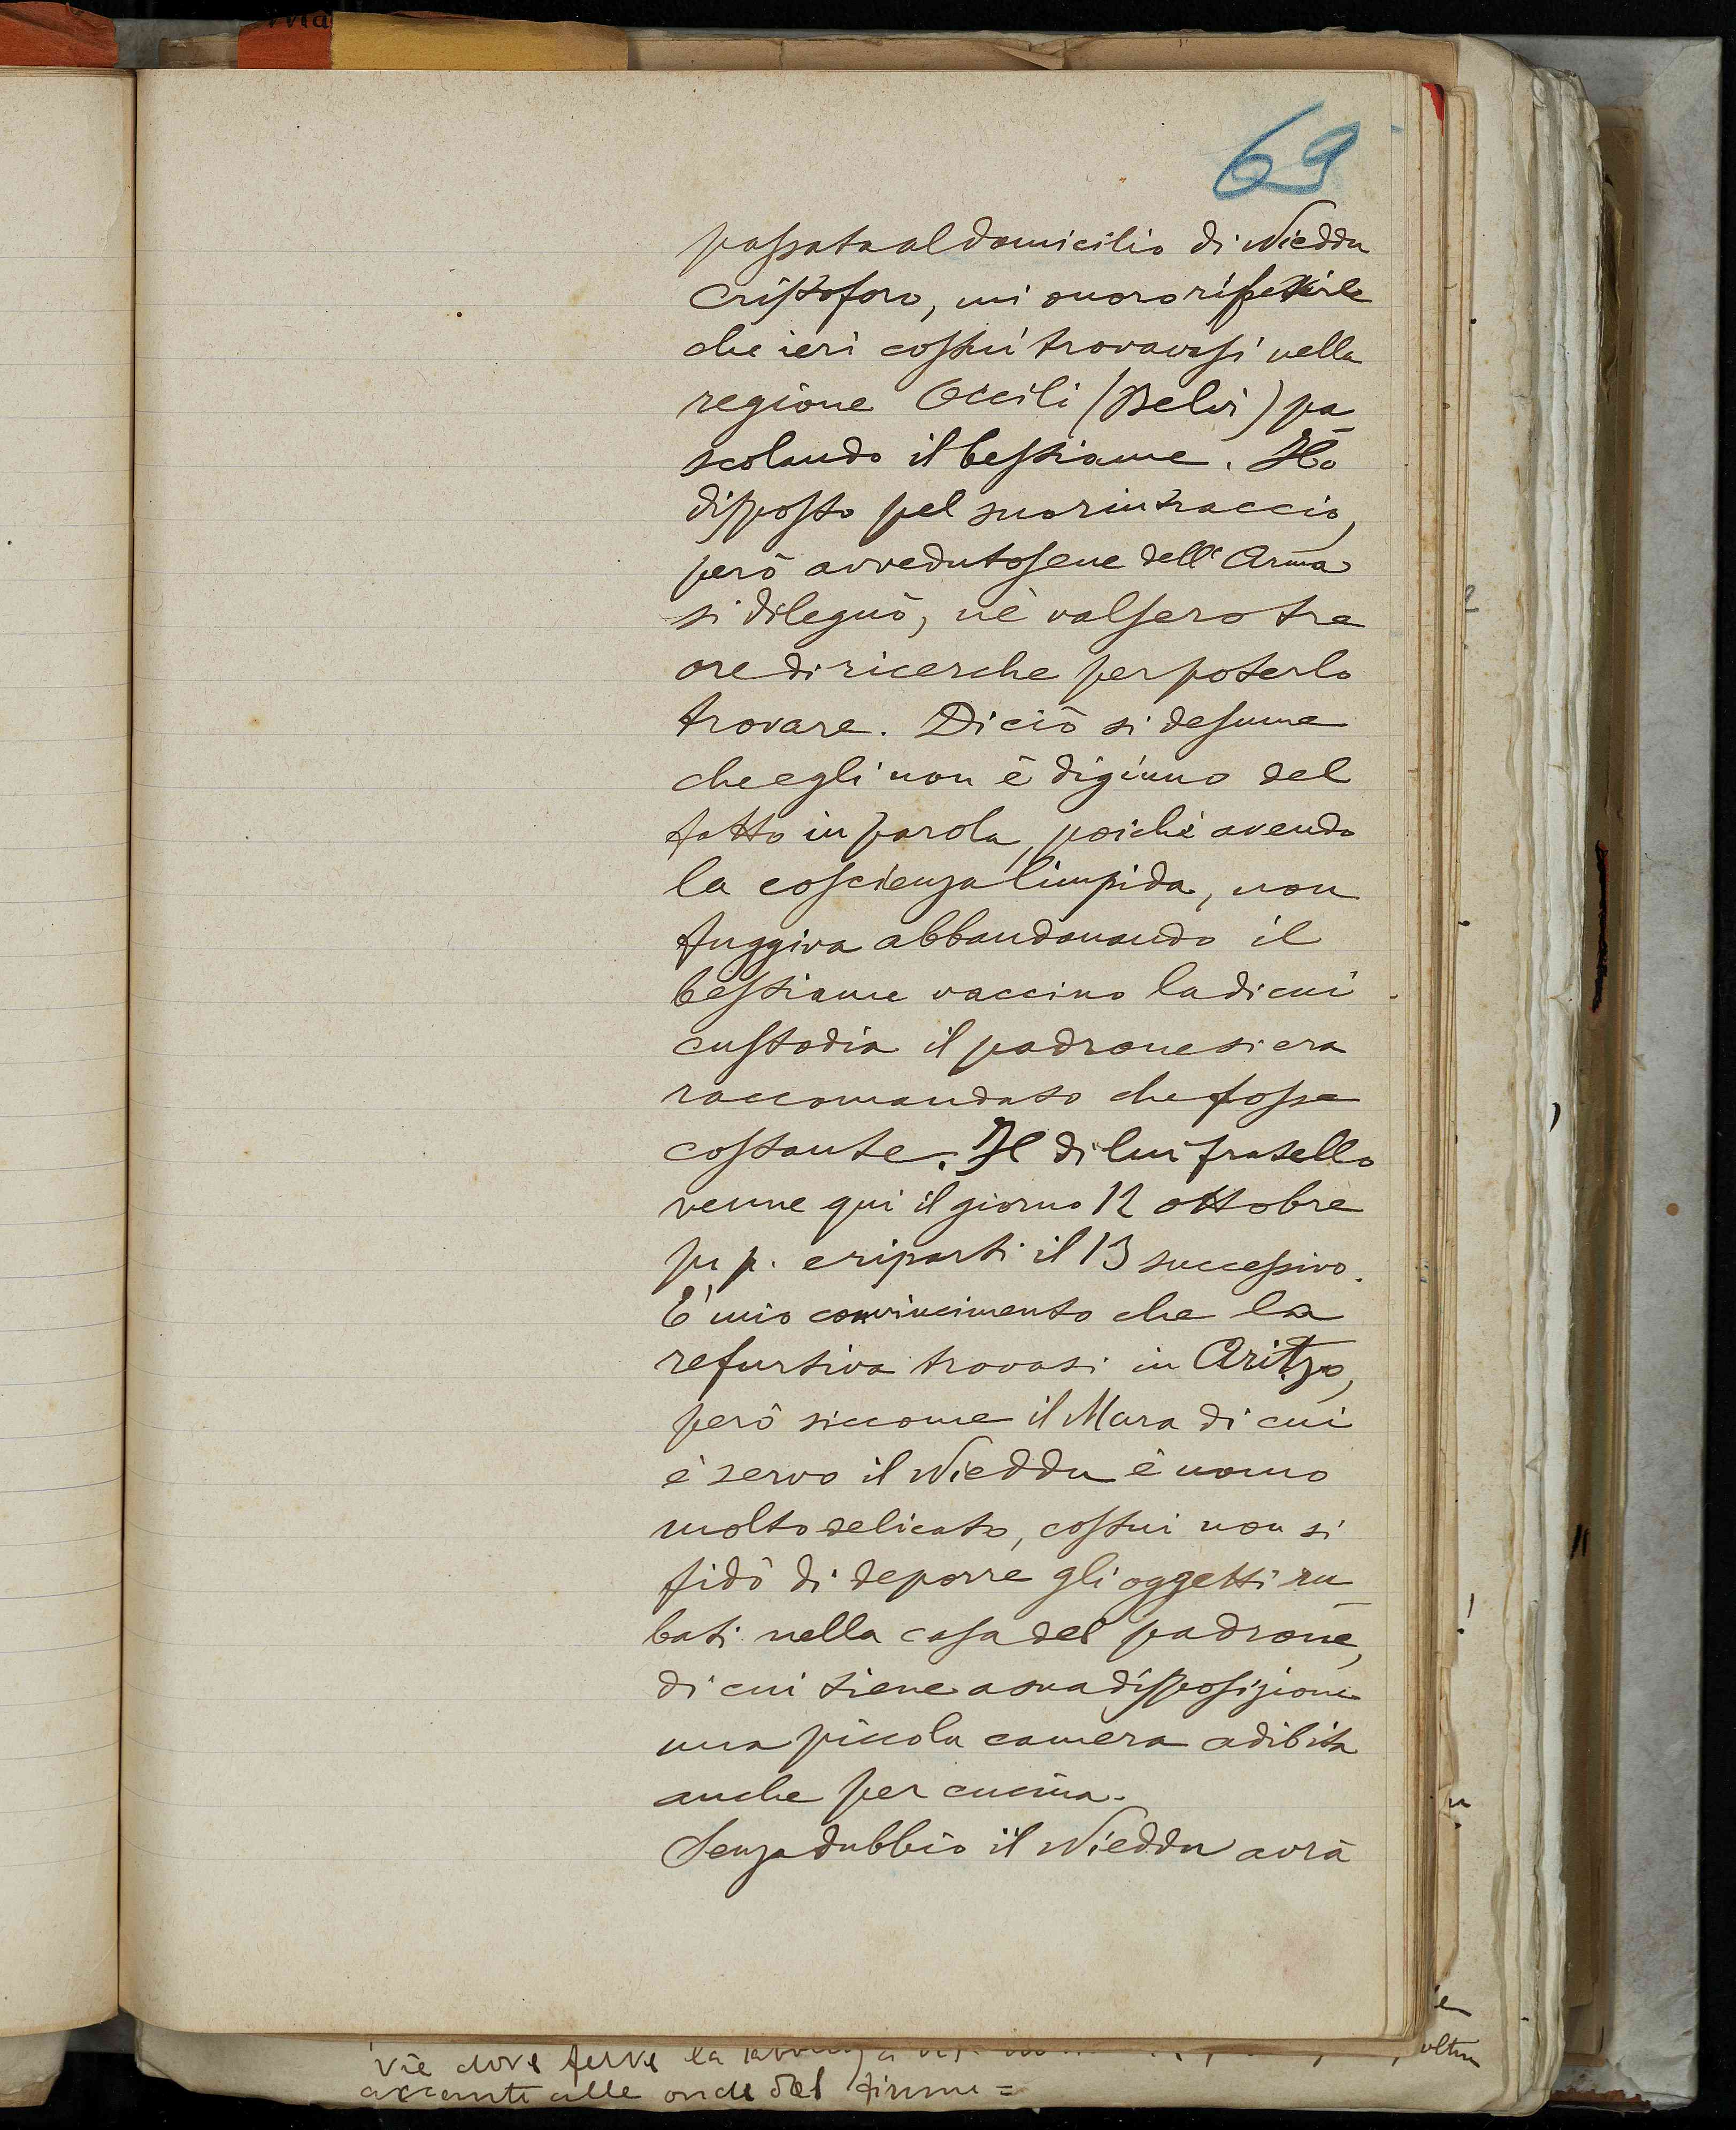 69
passata al domicilio di Nieddu
Cristoforo, mi onoro riferirle
che ieri costui trovavasi nella
regione Occili (Belvi) pa
scolando il bestiame. Ho
disposto pel suo rintraccio,
però avvedutosene dell'Arma
si dileguò, nè valsero tre
ore di ricerche per poterlo
trovare. Di ciò si desume
che egli non è digiuno del
fatto in parola, poichè avendo
la coscienza limpida, non
fuggiva abbandonando il
bestiame vaccino la di cui
custodia il padrone si era
raccomandato che fosse
costante. Il di lui fratello
venne qui il giorno 12 ottobre
p. p. e ripartì il 13 successivo.
È mio convincimento che la
refurtiva trovasi in Aritzo,
però siccome il Mura di cui
è servo il Nieddu è uomo
molto delicato, costui non si
fidò di deporre gli oggetti ru
bati nella casa del padrone,
di cui tiene a sua disposizione
una piccola camera adibita
anche per cucina.
Senza dubbio il Nieddu avrà
vie dove ferve la
accanto alle onde del fiume =